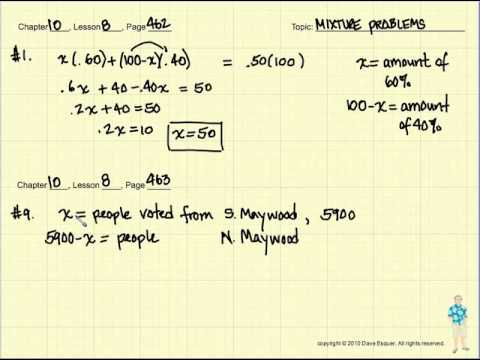 Chapter 10, Lesson 8, Page 462 Topic: MIXTURE PROBLEMS
#1. x(.60)+(100-x)(.40) = .50(100) x= amount of 60%
.6x + 40 - .40x = 50 100-x = amount of 40%
.2x + 40 = 50
.2x = 10 x = 50
Chapter 10, Lesson 8, Page 463
#9. x = people voted from S. Maywood, 5900
5900-x = people N. Maywood
copyright © 2010 Dave Esquer. All rights reserved.